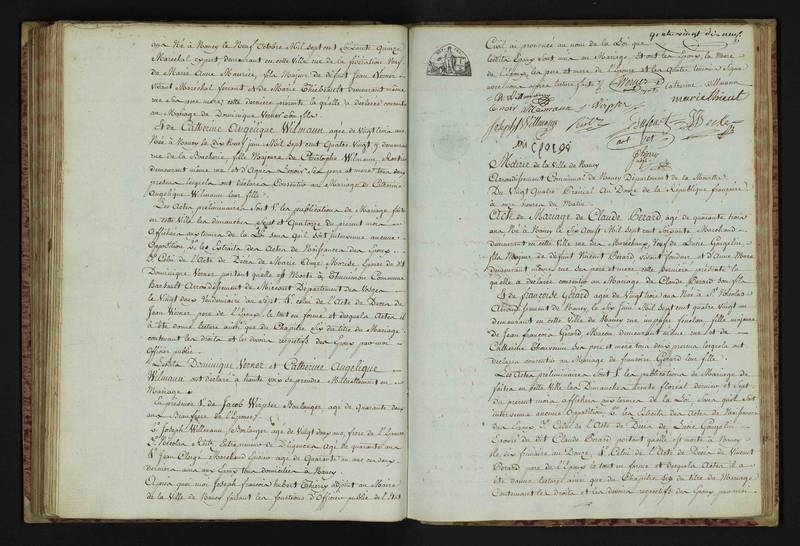 ans Né à Nancy le Neuf Octobre Mil Sept cent Soixante quinze
Maréchal expert, demeurant en cette Ville rue de la fédération, Veuf
de Marie Anne Maurice, fils Majeur de défunt Jean Verner
vivant Maréchal ferrant et de Marie Thiebault demeurant même
rue Ses père mère, cette dernière présente laquelle a déclaré consentir
au Mariage de Dominique Verner son fils.
Et de Catherine Angélique Wilmann agée de Vingt trois ans
Née à Nancy le dix Mil Sept cent Quatre vingt demeurant
rue de la Boucherie, fille Majeure de Christophe Wilmann,
demeurant même rue et d'Agnès Lenoir Ses père et mère tous deux
présens lesquels ont déclaré Consentir au Mariage de Catherine
Angélique Wilmann leur fille.
Les Actes préliminaires Sont 1° les publications de Mariage faites
en cette Ville les dimanches Sept et Quatorze du présent mois
Affichées aux termes de la Loi sans qu'il soit intervenu aucune
Opposition 2° les Extraits des Actes de Naissances des Epoux
3° Celui de l'Acte de Décès de Marie Anne Epouse du dit
Dominique Verner portant quelle est Morte à Commune
Arrondissement de Mirecourt Département des Vosges
le Vingt deux Vendémiaire an Sept 4° celui de l'Acte de Décès de
Jean Verner père de l'Epoux, le tout en forme et desquels Actes il
à été donné lecture ainsi que du Chapitre Six du titre du Mariage
contenant les droits et les devoirs respectifs des Epoux par moi
Officier public.
Lesdits Dominique Verner et Catherine Angélique
Wilmann ont déclaré à haute voix se prendre Mutuellement en
Mariage.
En présence 1° de Jacob Boulanger, agé de Quarante deux
ans Beau frère de l'Epouse
2° Joseph Willmann, Boulanger agé de vingt deux ans, frère de l'Epouse
3° Nicolas agé de quarante ans
4° Jean Clorgé Marchand agé de Quarante un ans ces deux
derniers amis des Epoux tous domiciliés à Nancy.
Après quoi moi Joseph françois hubert Thiery adjoint au Maire
de la Ville de Nancy faisant les fonctions d'Officier public de l'Etat
quatre vingt dix neuf
Civil ai prononcé au nom de la Loi que
lesdits Epoux sont unis en Mariage Et ont les Epoux, la mère
de l'Epoux, les père et mère de l'Epouse et les Quatre témoins Signé
avec nous après lecture faite
Catherine Willmann
Lenoir
Joseph Willmann
Clorgé
Thiery
Mairie de la Ville de Nancy
Arrondissement Communal de Nancy Département de la Meurthe
Du Vingt Quatre Prairial An Douze de la République française
à onze heures du Matin
Acte de Mariage de Claude Berard agé de quarante trois
ans Né à Nancy le Six Août Mil Sept cent Soixante Marchand
demeurant en cette Ville rue des Maréchaux, Veuf de Lucie
fils Majeur de défunt Vincent Berard vivant fondeur et d'Anne
demeurant même rue Ses père et mère, cette dernière présente la
quelle a déclaré consentir au Mariage de Claude Berard son fils
Et de françoise Gérard agée de Vingt trois ans Née à St. Nicolas
Arrondissement de Nancy, le Six Juin Mil Sept cent quatre vingt un
demeurant en cette Ville de Nancy rue fille majeure
de Jean françois Gérard Maçon demeurant même rue et de
Catherine Thouvenin Ses père et mère tous deux présens lesquels ont
déclaré consentir au Mariage de françoise Gérard leur fille.
Les Actes préliminaires Sont 1° les publications de Mariage
faites en cette Ville les Dimanches trente floréal dernier et Sept
du présent mois affichées aux termes de la Loi, Sans quil soit
intervenu aucune Opposition 2° les Extraits des Actes de Naissances
des Epoux 3° Celui de l'Acte de Décès de Lucie
Epouse du dit Claude Berard portant quelle est morte à Nancy
le dix frimaire an Douze, 4° Celui de l'Acte de Décès de Vincent
Berard père de l'Epoux le tout en forme et desquels Actes il a
été donné lecture ainsi que du Chapitre Six du titre du Mariage
Contenant les droits et les devoirs respectifs des Epoux par moi